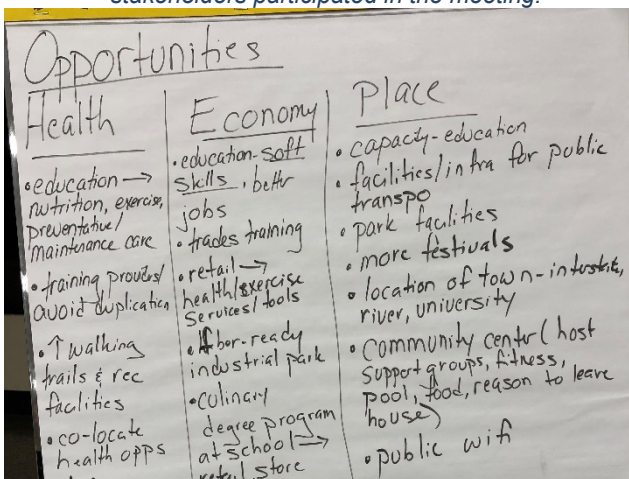 stakeholders participated in the meeting.
Opportunities
Health
• education →
nutrition, exercise,
preventative/
maintenance care
• training provders/
avoid duplication
• ↑ walking
trails & rec
facilities
• co-locate
health opps
Economy
• education - soft
skills, better
jobs
• trades training
• retail →
health/exercise
services/tools
• fiber-ready
industrial park
• culinary
degree program
at school →
retail store
Place
• capacity - education
• facilities/infra for public
transpo
• park facilities
• more festivals
• location of town - interstate,
river, university
• community center (host
support groups, fitness,
pool, food, reason to leave
house)
• public wifi